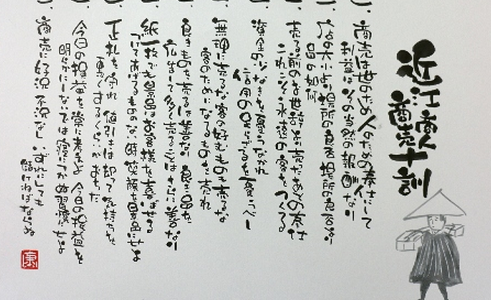 近江商人
商売十訓
商売は世のため人のための奉仕にして
利益はその当然の報酬なり
店の大小より場所の良否 場所の良否より
品の如何
売る前のお世辞より売った後の奉仕
これこそ永遠の客をつくる
資金の少なきを憂うなかれ
信用の足らざるを憂うべし
無理に売るな 客の好むものも売るな
客のためになるものを売れ
良きものを売るは善なり 良き品を
広告して多く売ることはさらに善なり
紙一枚でも景品はお客様を喜ばせる
つけてあげるもののない時 笑顔を景品にせよ
正札を守れ 値引きは却って気持ちを
悪くするくらいが落ちだ
今日の損益を常に考えよ 今日の損益を
明らかにしないでは 寝につかぬ習慣にせよ
商売に好況 不況なし いずれにしても
儲けねばならぬ